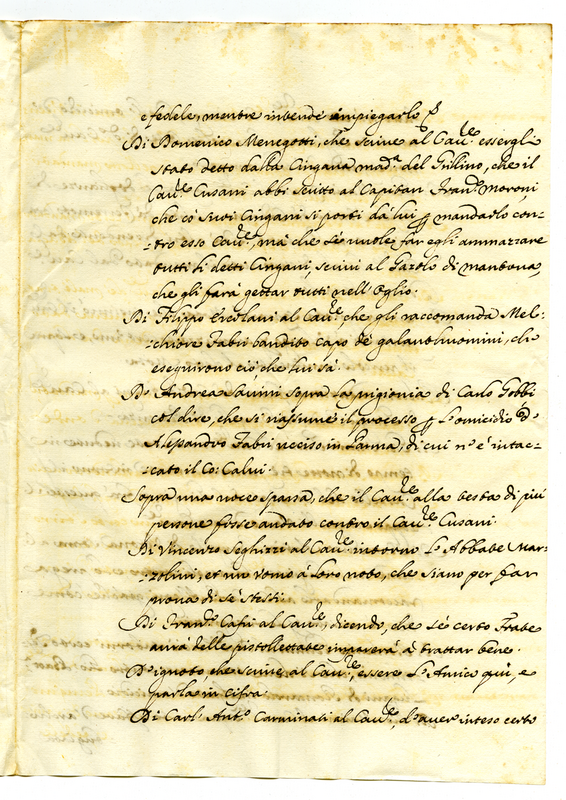 e fedele, mentre intende impiegarlo
Di Domenico Menegotti, che scrive al Cau.re essergli
stato detto dalla Cingana mad.a del Grillino, che il
Cau.re Cusani abbi scritto al Capitan Fran.co Moroni,
che co' suoi Cingani si porti da lui p mandarlo con-
-tro esso Cau.re, mà che se vuole far egli ammazzare
tutti li detti Cingani, scrivi al di mantova,
che gli farà gettar tutti nell'Oglio.
Di Filippo Ercolani al Cau.re che gli raccomanda Mel-
chiore Fabri bandito capo de galanthuomini, che
eseguirono ciò che lui sà.
D' Andrea sopra la prigionia di Carlo Gobbi
col dire, che si riassume il processo p l'omicidio d'
Alessandro Fabri ucciso in Parma, di cui n'è intac-
-cato il Co: Calvi.
Sopra una voce sparsa, che il Cau.re alla testa di più
persone fosse andato contro il Cau.re Cusani.
Di Vincenzo Seghizzi al Cau.re intorno l'Abbate Mar-
zolini, et un uomo à loro noto, che siano per far
prova di sè stessi.
Di Fran.co al Cau.re, dicendo, che se certo Frate
aurà delle pistollettate imparerà à trattar bene.
D'ignoto, che scrive al Cau.re, essere l'Amico quì, e
parla in cifra.
Di Carl' Ant.o Carminati al Cau.re, d'auer inteso certo